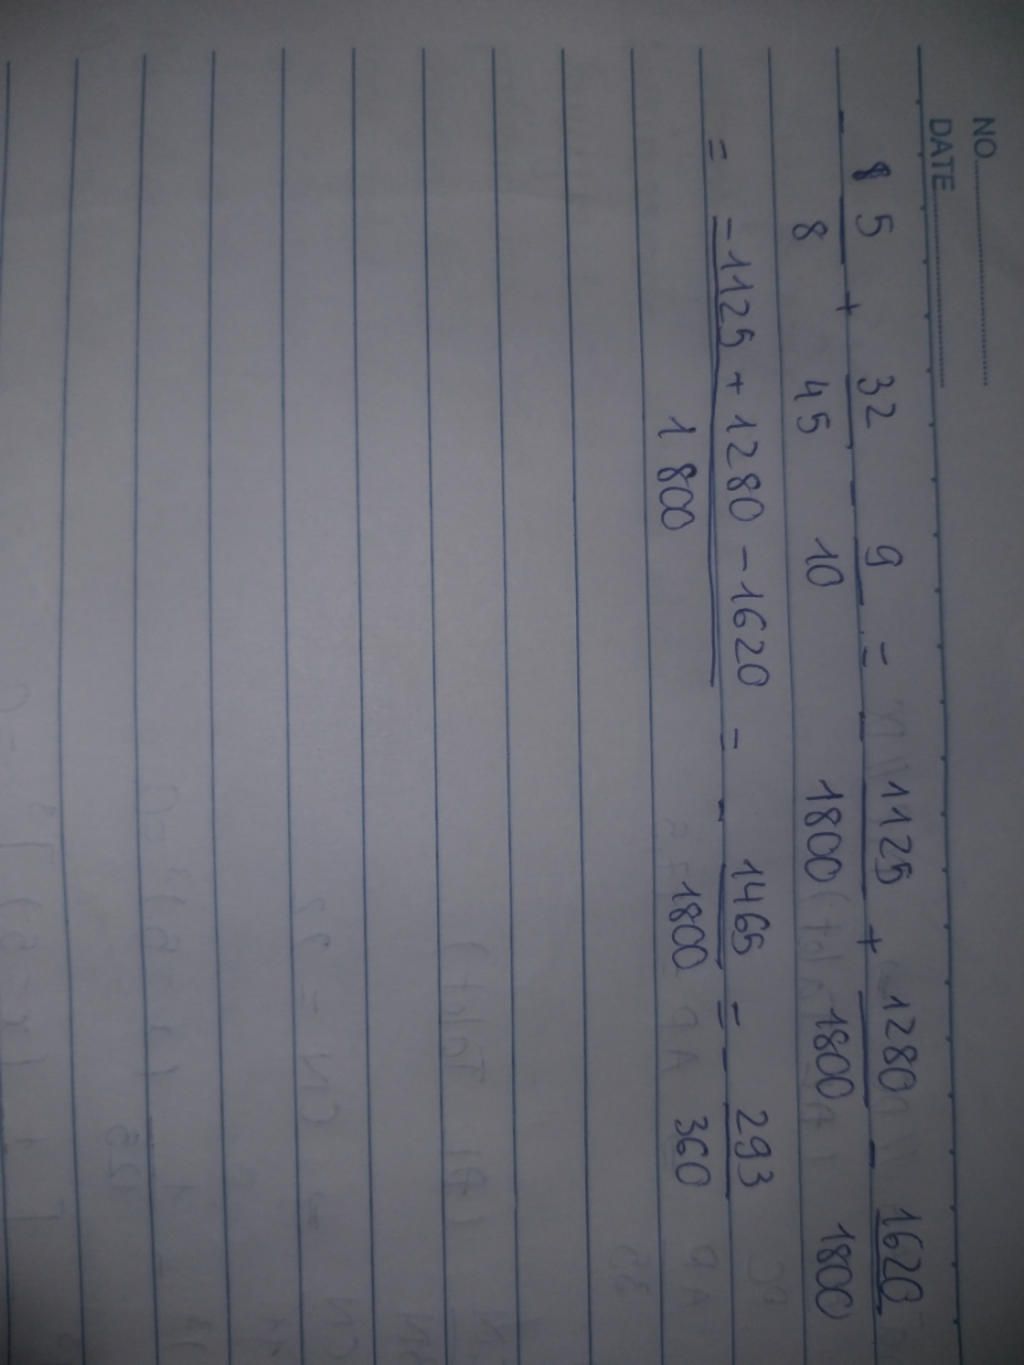 NO.
DATE
- 5/8 + 32/45 - 9/10 = - 1125/1800 + 1280/1800 - 1620/1800
= -1125 + 1280 - 1620/1800 = - 1465/1800 = - 293/360